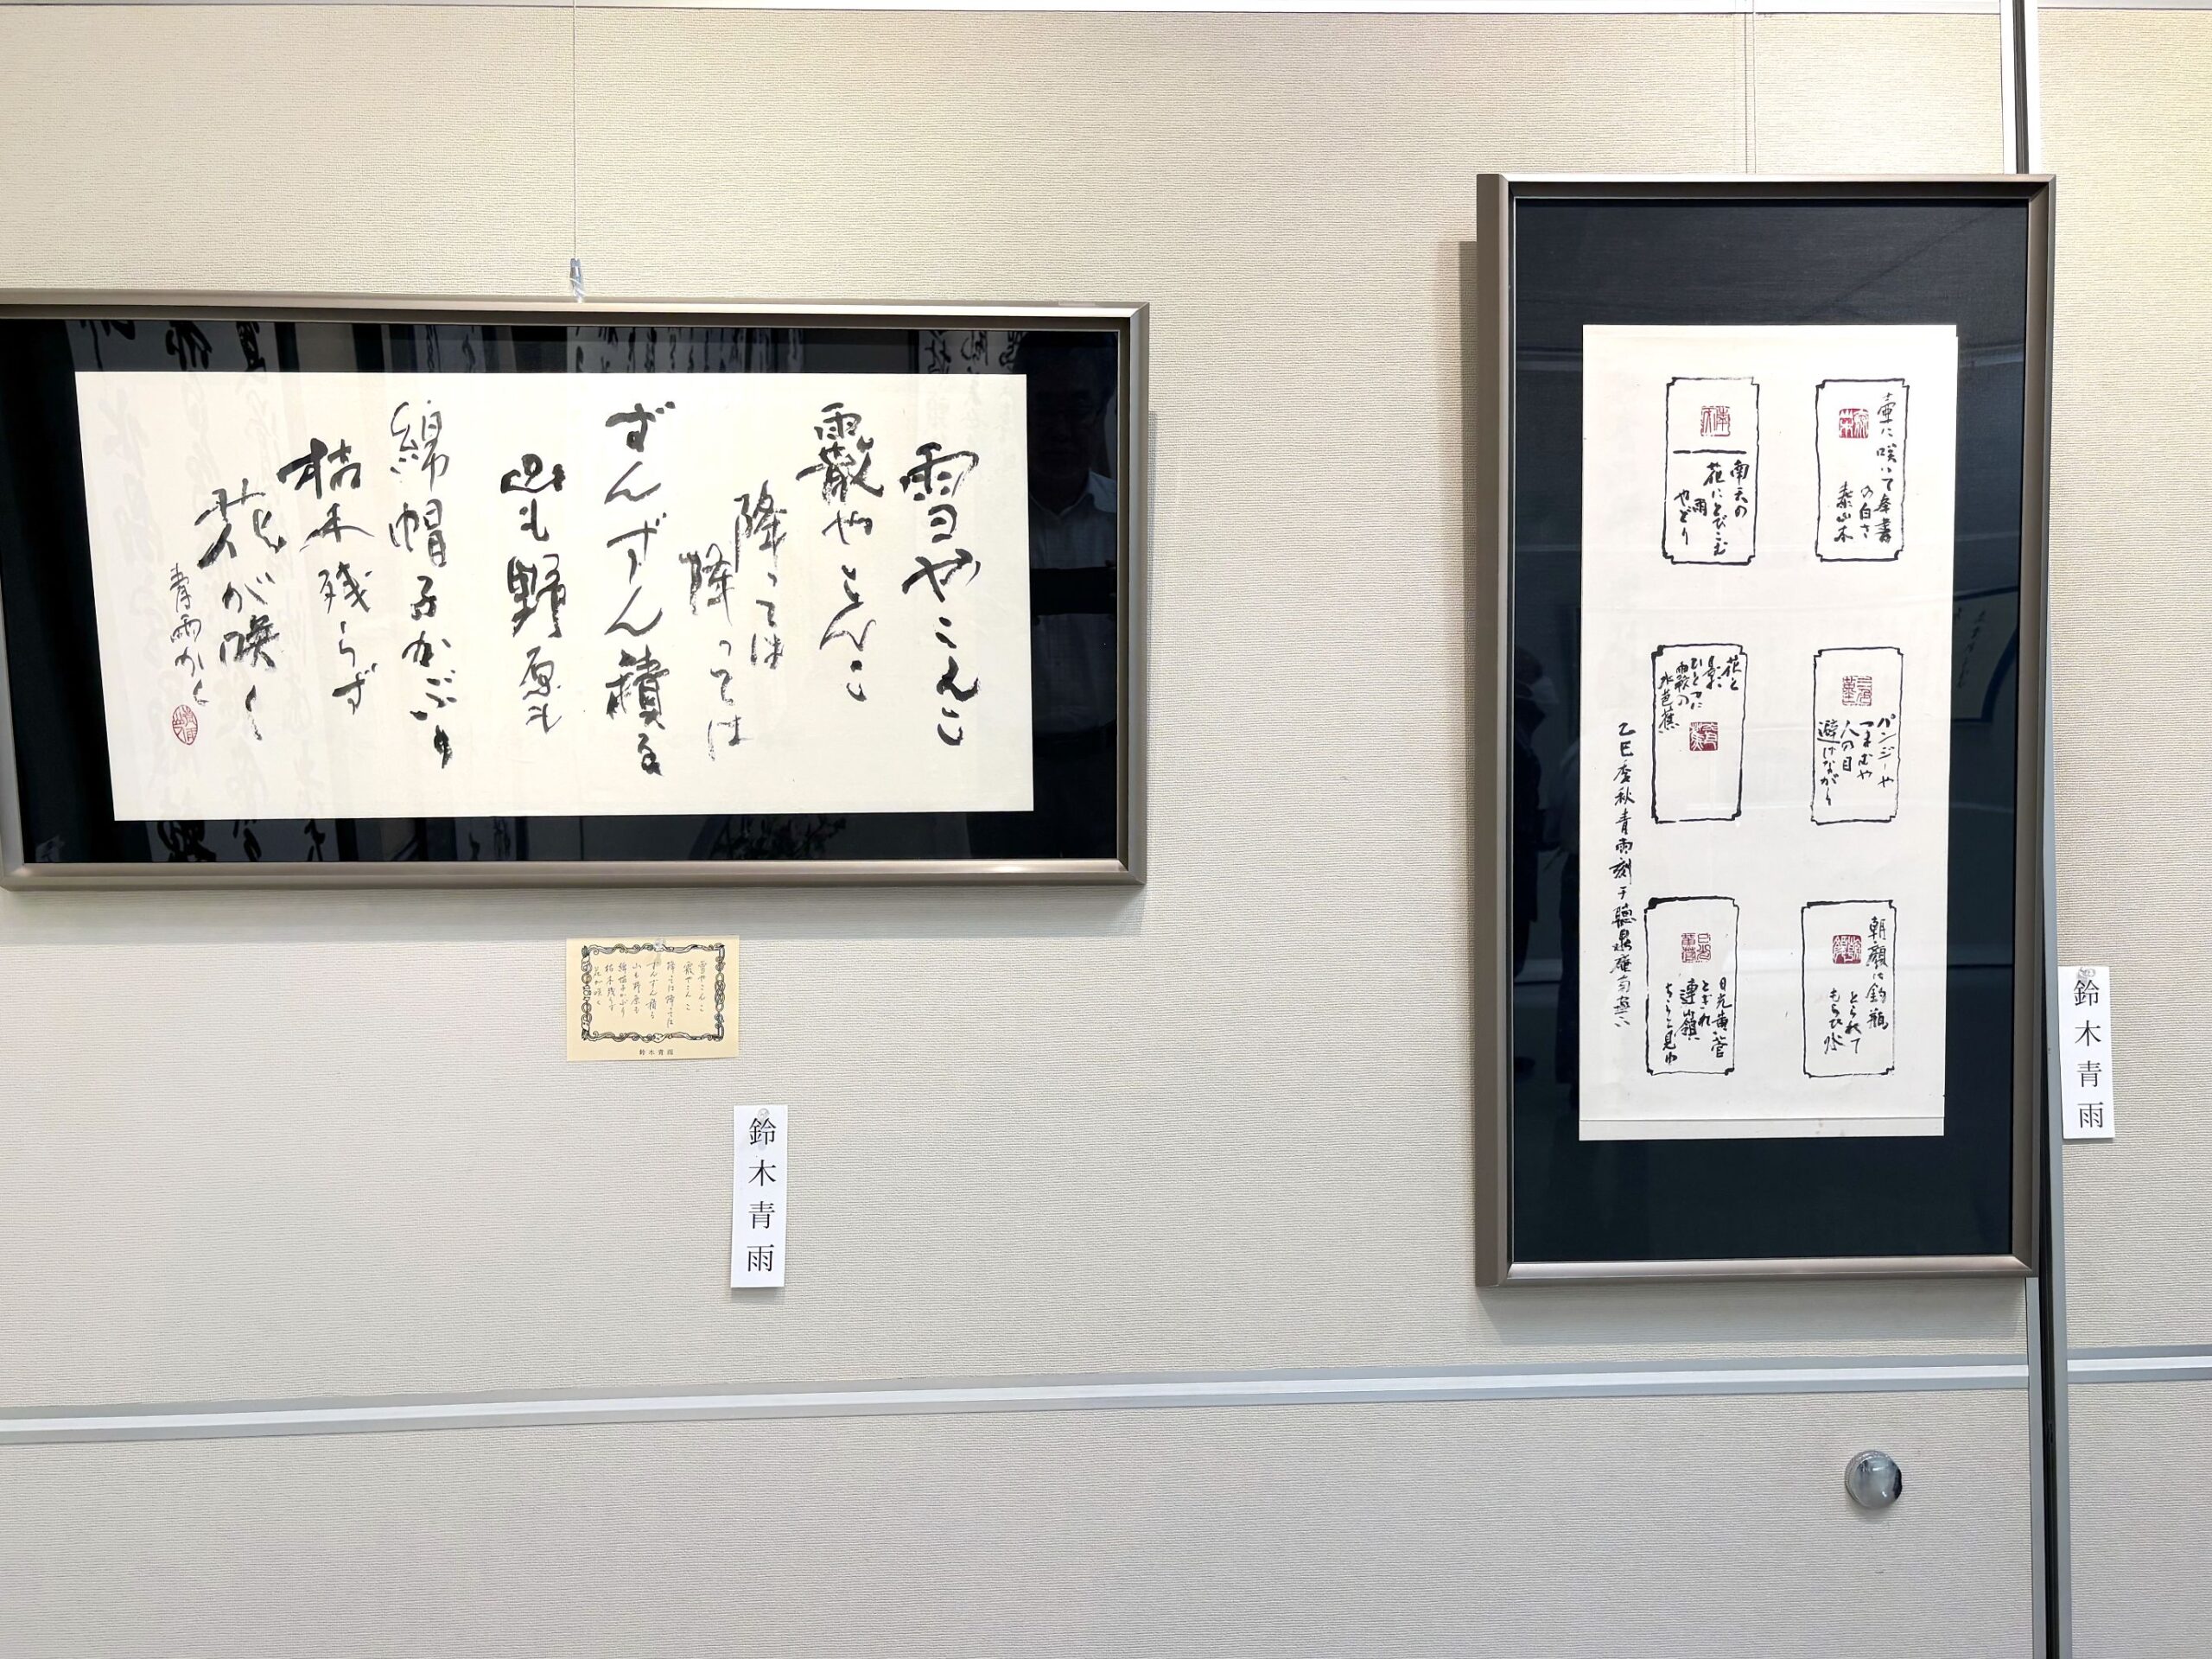 雪やこんこ
霰やこんこ
降っては
降っては
ずんずん積る
山も野原も
綿帽子かぶり
枯木残らず
花が咲く
青雨かく
雪やこんこ
霰やこんこ
降っては降っては
ずんずん積る
山も野原も
綿帽子かぶり
枯木残らず
花が咲く
鈴木青雨
鈴木青雨
壷に咲いて奉書
の白さ
泰山木
南天の
花にとびこむ
雨
やどり
パンジーや
つまむや
人の目
避けながら
花と
影
ひとつに
雨殿の
水芭蕉
朝顔に釣瓶
とられて
もらひ水
日光黄菅
とぎれ
連山鎖
ちらと見ゆ
乙巳季秋青雨刻于聴泉庵南窓
鈴木青雨